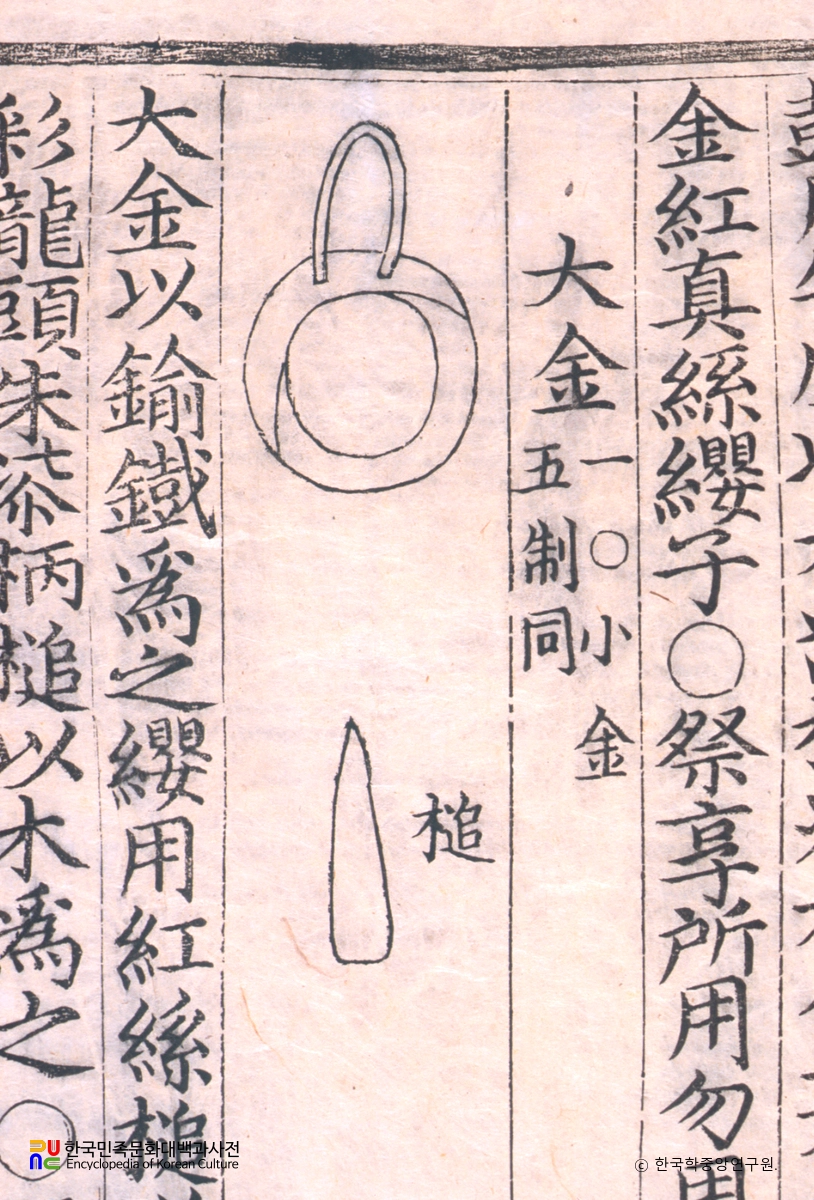 金紅真絲纓子○祭享所用勿
大金一○小金
五制同
槌
大金以鍮鐵爲之纓用紅絲槌
彩龍頭朱柒柄槌以木爲之○
한국민족문화대백과사전
Encyclopedia of Korean Culture
© 한국학중앙연구원.